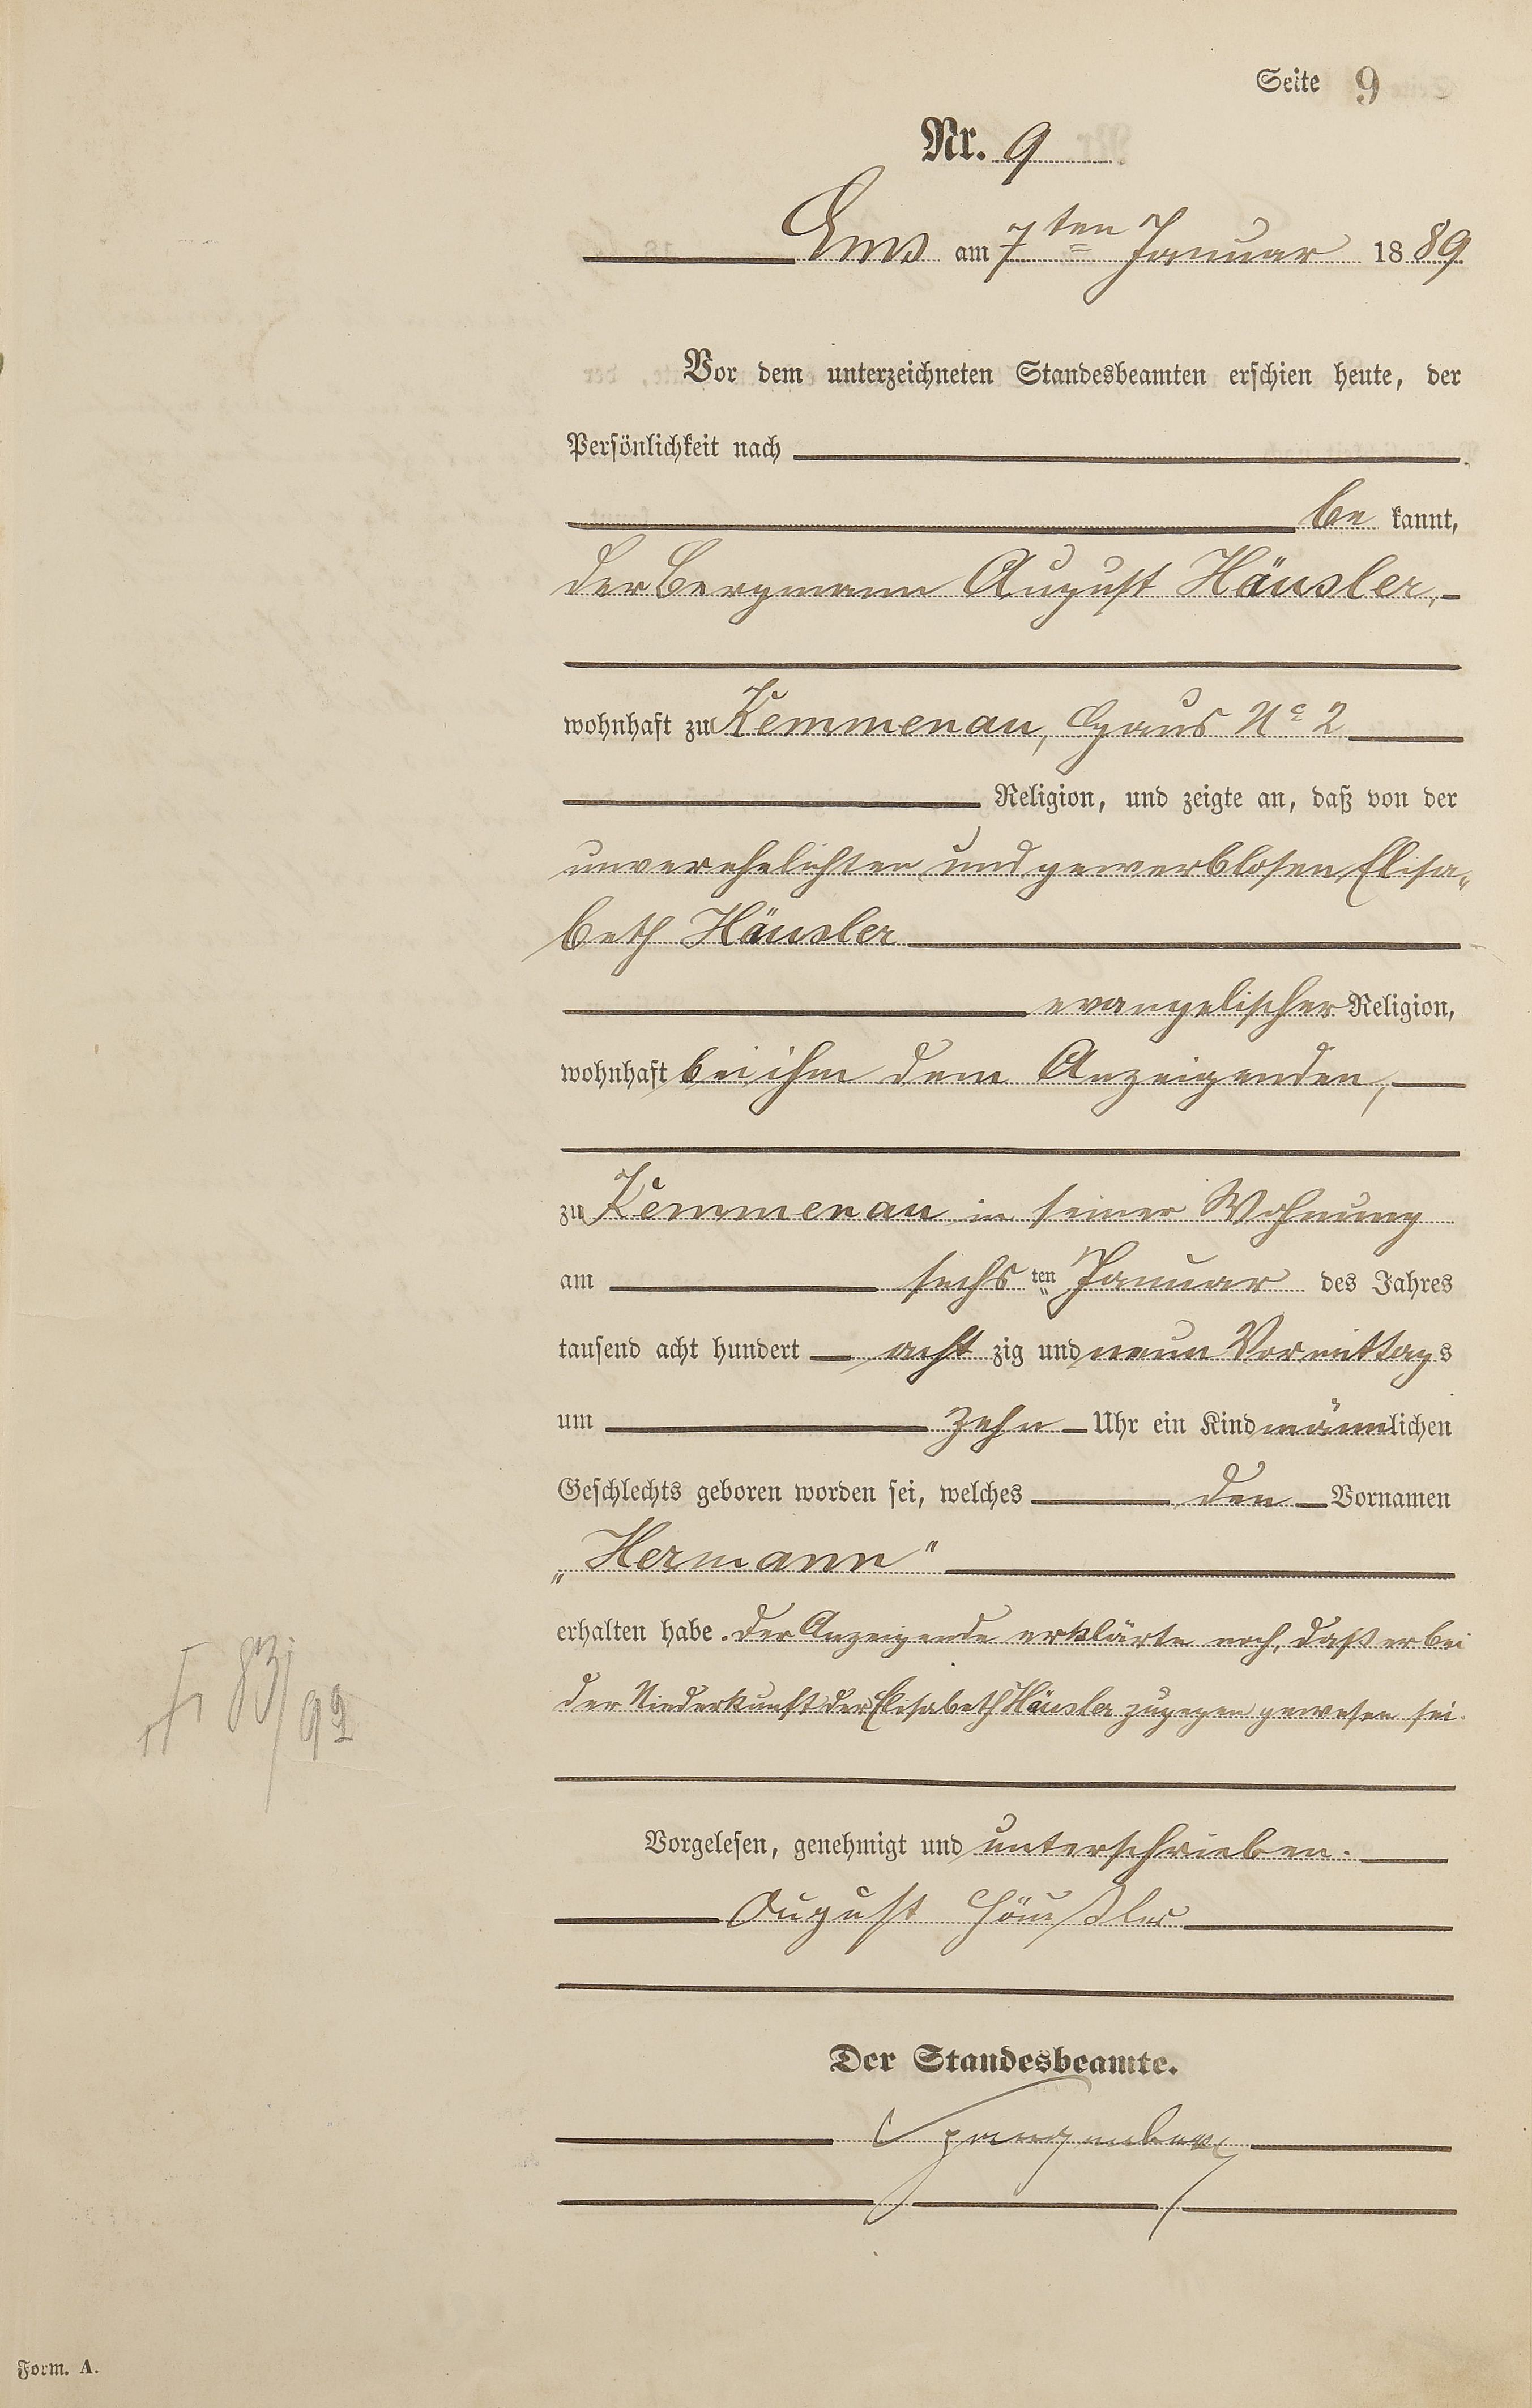 Seite 9
Nr. 9
Ems am 7ten Januar 1889
Vor dem unterzeichneten Standesbeamten erschien heute, der
Persönlichkeit nach
be kannt,
der Bergmann August Häusler,
wohnhaft zu Kemmenau, Haus No 2
Religion, und zeigte an, daß von der
unverehelichten und gewerblosen Elisa„
beth Häusler
evangelischer Religion,
wohnhaft bei ihm dem Anzeigenden,
zu Kemmenau in seiner Wohnung
am sechs ten Januar des Jahres
tausend acht hundert acht zig und neun Vormittags
um zehn Uhr ein Kind männlichen
Geschlechts geboren worden sei, welches den Vornamen
„Hermann"
erhalten habe. Der Anzeigende erklärte noch, daß er bei
der Niederkunft der Elisabeth Häusler zugegen gewesen sei.
83/92
Vorgelesen, genehmigt und unterschrieben.
August Häußler
Der Standesbeamte.
Spangenberg
Form. A.